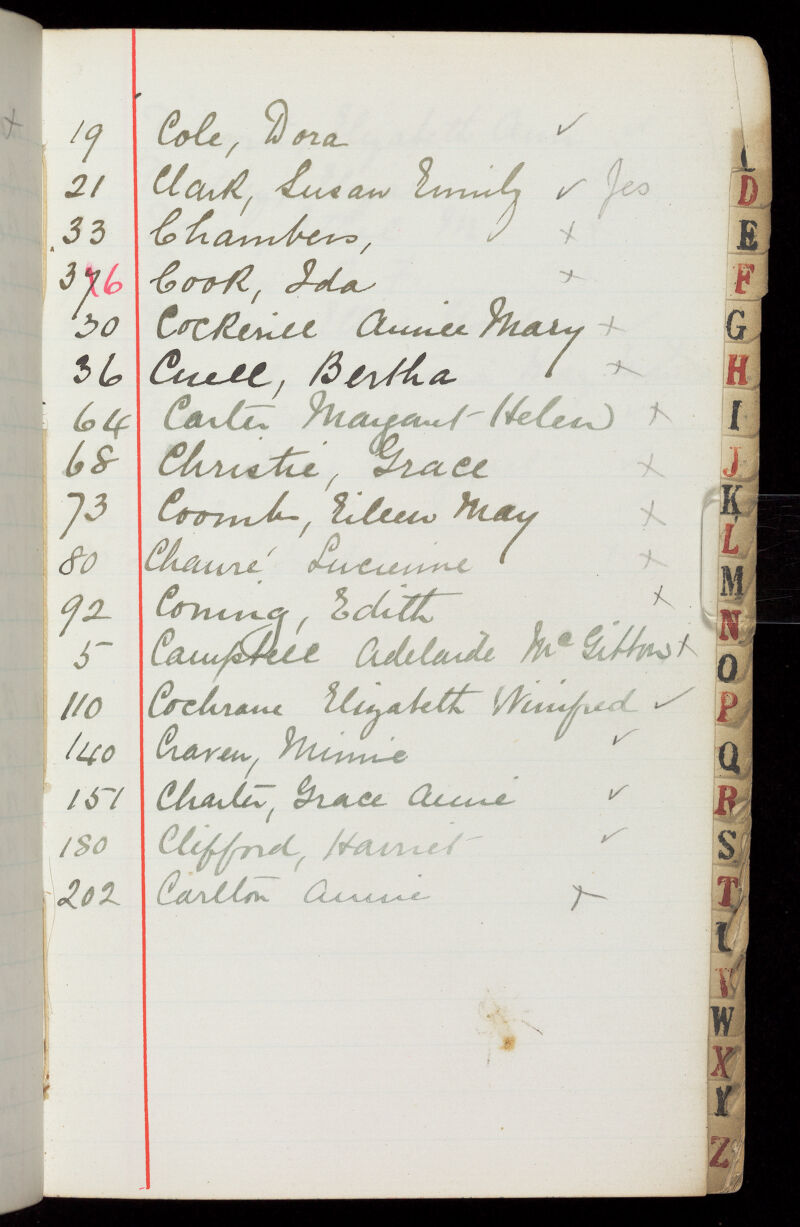 19 Cole, Dora ✓
21 Clark, Susan Emily ✓ Yes
33 Chambers, x
376 Cook, Ida x
30 Cockerill Annie Mary x
36 Cuell, Bertha x
64 Carter Margaret Helen x
68 Christie, Grace x
73 Coombs, Eileen May x
80 Chauré Lucienne x
92 Coning, Edith x
5 Campbell Adelaide Mc x
110 Cochrane Elizabeth Winifred ✓
140 Craven, Minnie ✓
151 Charter, Grace Annie ✓
180 Clifford, Harriet ✓
202 Carlton Annie x
D
E
F
G
H
I
J
K
L
M
N
O
P
Q
R
S
T
U
V
W
X
Y
Z